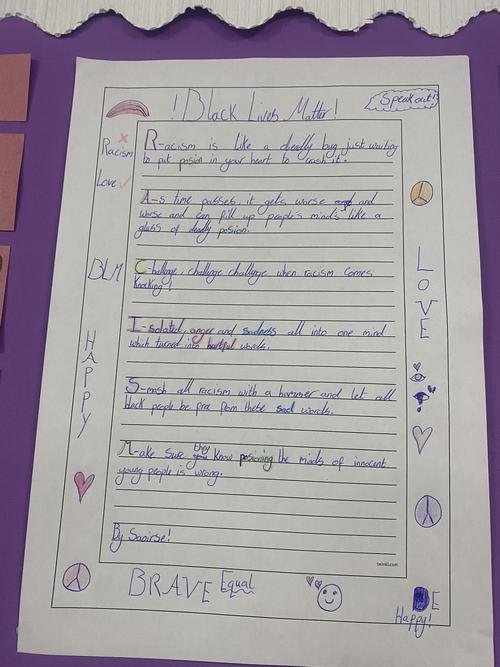 !Black Lives Matter!
Speak out!
Racism
Love
BLM
HAPPY
R-acism is like a deadly bug just waiting
to put posion in your heart to crash it.
A-s time passes, it gets worse and
worse and can fill up people's minds like a
glass of deadly posion.
C-hallenge, challenge challenge when racism comes
knocking!
I-solated, anger and sadness all into one mind
which turned into hurtful words.
S-mash all racism with a hammer and let all
black people be free from these sad words.
M-ake sure they know posioning the minds of innocent
young people is wrong.
By Saoirse!
twinkl.com
LOVE
BRAVE Equal
BE
Happy!